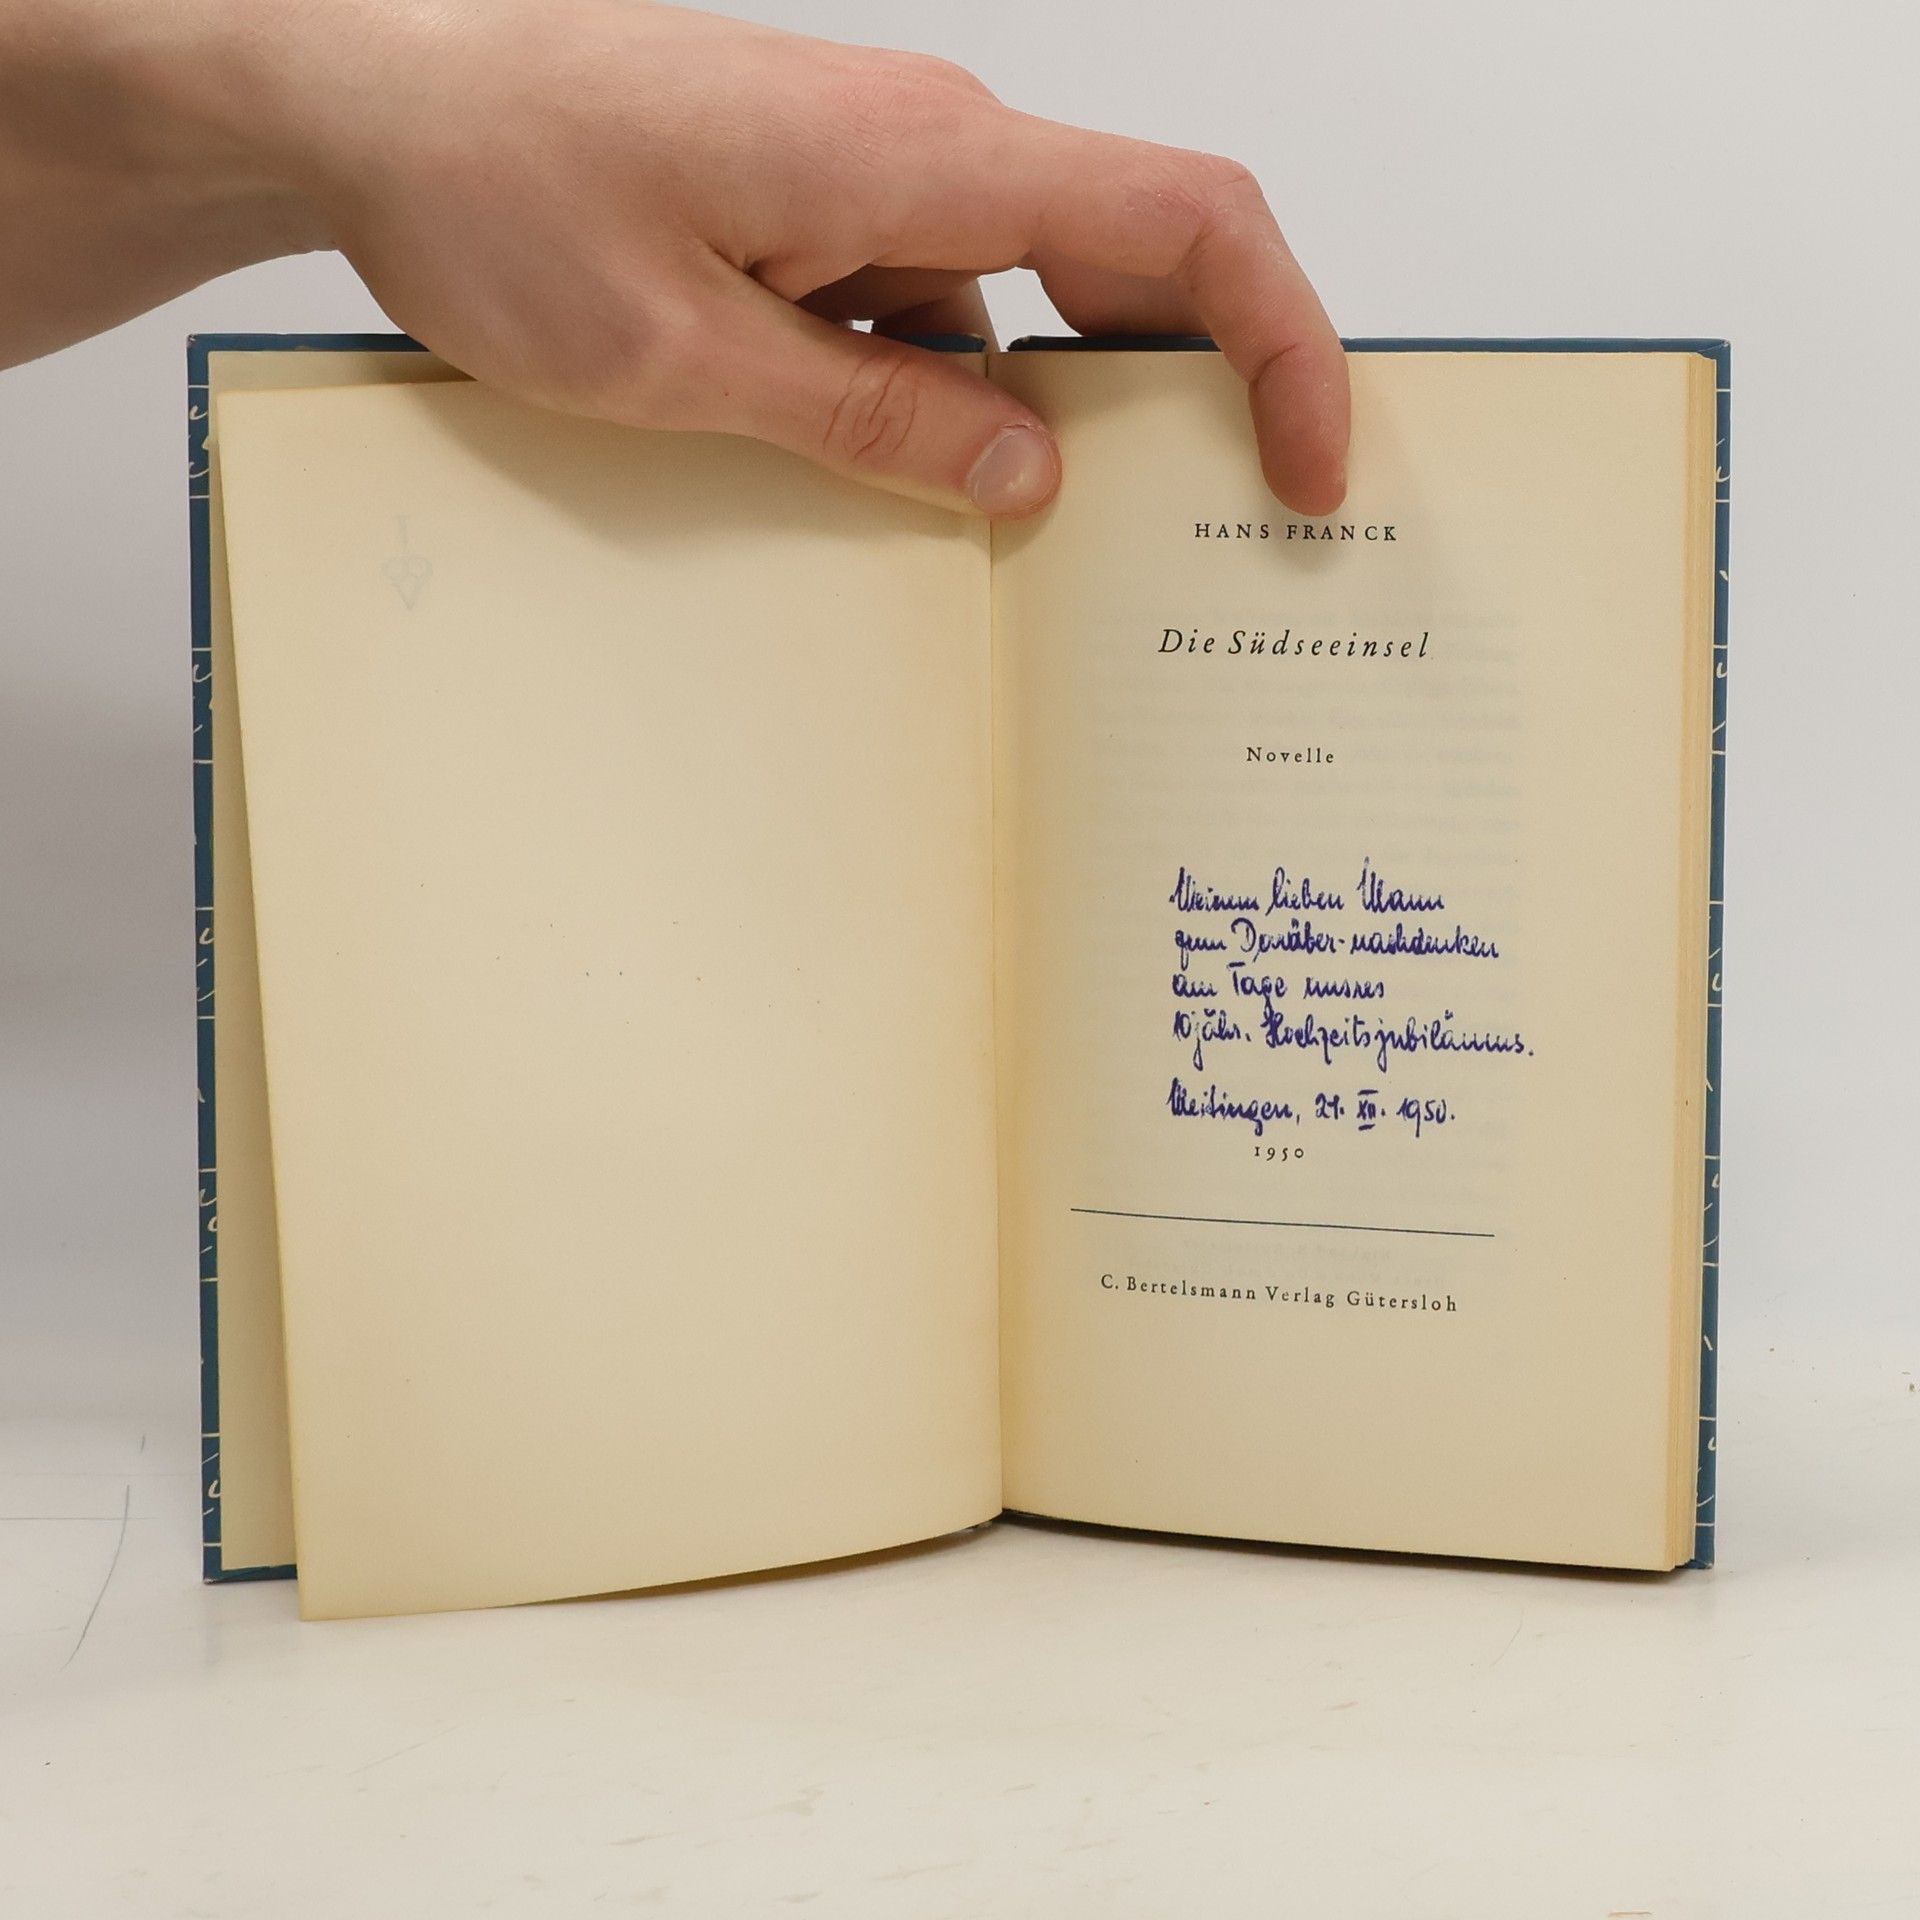 HANS FRANCK
Die Südseeinsel
Novelle
Meinem lieben Mann
zum Darüber-nachdenken
am Tage unsres
10jähr. Hochzeitsjubiläums.
Meitingen, 21. XII. 1950.
1950
C. Bertelsmann Verlag Gütersloh